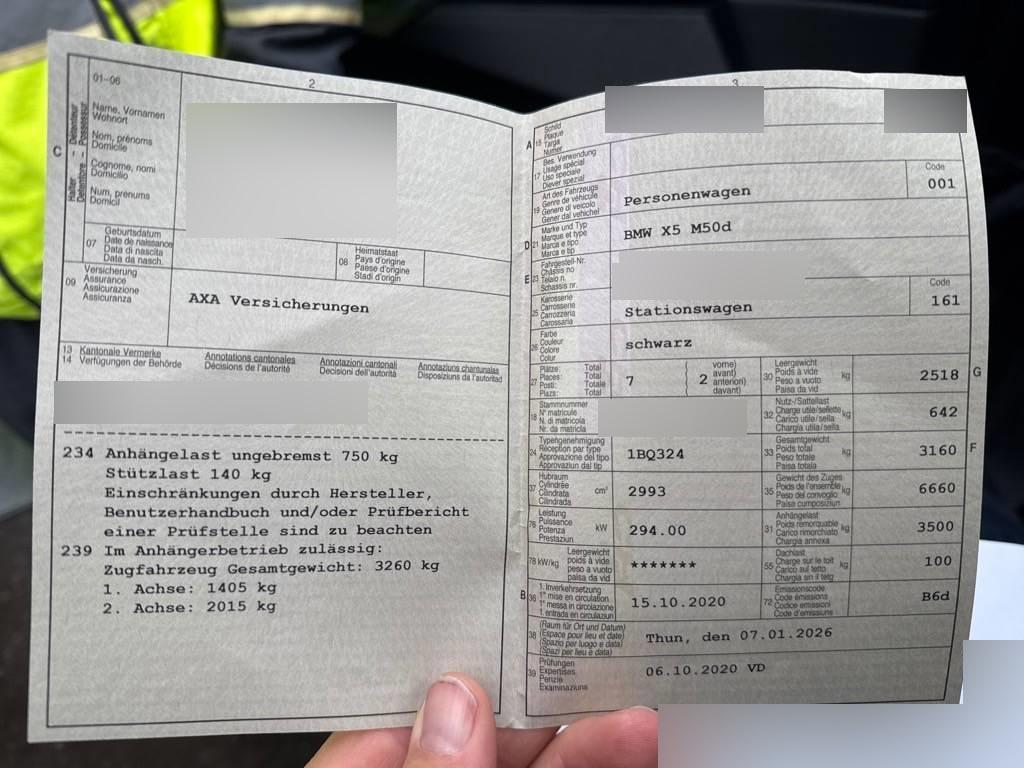 2
01-06
C
Halter - Détenteur
Detentore - Possessur
Name, Vornamen
Wohnort
Nom, prénoms
Domicile
Cognome, nomi
Domicilio
Num, prenums
Domicil
07
Geburtsdatum
Date de naissance
Data di nascita
Data da nasch.
08
Heimatstaat
Pays d'origine
Paese d'origine
Stadi d'origin
09
Versicherung
Assurance
Assicurazione
Assicuranza
AXA Versicherungen
13 Kantonale Vermerke
14 Verfügungen der Behörde
Annotations cantonales
Décisions de l'autorité
Annotazioni cantonali
Decisioni dell'autorità
Annotaziuns chantunalas
Disposiziuns da l'autoritad
234 Anhängelast ungebremst 750 kg
Stützlast 140 kg
Einschränkungen durch Hersteller,
Benutzerhandbuch und/oder Prüfbericht
einer Prüfstelle sind zu beachten
239 Im Anhängerbetrieb zulässig:
Zugfahrzeug Gesamtgewicht: 3260 kg
1. Achse: 1405 kg
2. Achse: 2015 kg
3
A
15
Schild
Plaque
Targa
Numer
17
Bes. Verwendung
Usage spécial
Uso speciale
Diever spezial
19
Art des Fahrzeugs
Genre de véhicule
Genere di veicolo
Gener dal vehichel
Personenwagen
Code
001
D 21
Marke und Typ
Marque et type
Marca e tipo
Marca e tip
BMW X5 M50d
E 23
Fahrgestell-Nr.
Châssis no
Telaio n.
Schassis nr.
25
Karosserie
Carrosserie
Carrozzeria
Carossaria
Stationswagen
Code
161
26
Farbe
Couleur
Colore
Colur
schwarz
27
Plätze: Total
Places: Total
Posti: Totale
Plazs: Total
7
2
vorne)
avant)
anteriori)
davant)
30
Leergewicht
Poids à vide
Peso a vuoto
Paisa da vid
kg
2518
G
18
Stammnummer
N° matricule
N. di matricola
Nr. da matricla
32
Nutz-/Sattellast
Charge utile/sellette
Carico utile/sella
Chargia utila/sella
kg
642
24
Typengenehmigung
Réception par type
Approvazione del tipo
Approvaziun dal tip
1BQ324
33
Gesamtgewicht
Poids total
Peso totale
Paisa totala
kg
3160
F
37
Hubraum
Cylindrée
Cilindrata
Cilindrada
cm³
2993
35
Gewicht des Zuges
Poids de l'ensemble
Peso del convoglio
Paisa cumposiziun
kg
6660
76
Leistung
Puissance
Potenza
Prestaziun
kW
294.00
31
Anhängelast
Poids remorquable
Carico rimorchiato
Chargia annexa
kg
3500
78 kW/kg
Leergewicht
poids à vide
peso a vuoto
paisa da vid
*******
55
Dachlast
Charge sur le toit
Carico sul tetto
Chargia sin il tetg
kg
100
B 36
1. Inverkehrsetzung
1re mise en circulation
1a messa in circolazione
1. entrada en circulaziun
15.10.2020
72
Emissionscode
Code émissions
Codice emissioni
Code d'emissiuns
B6d
38
(Raum für Ort und Datum)
(Espace pour lieu et date)
(Spazio per luogo e data)
(Spazi per lieu e data)
Thun, den 07.01.2026
39
Prüfungen
Expertises
Perizie
Examinaziuns
06.10.2020 VD